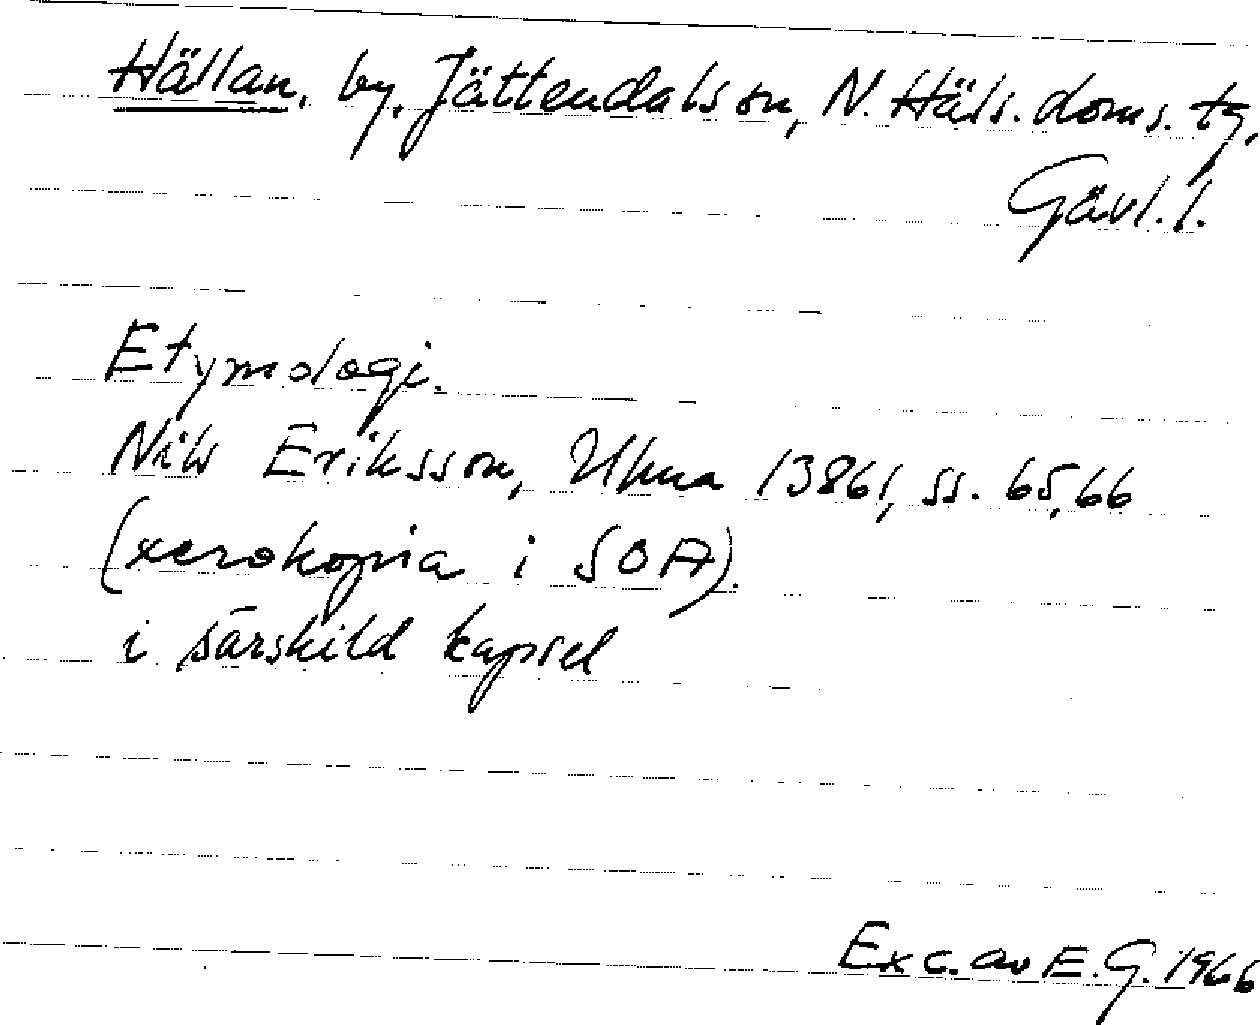 Hällan, by, Jättendals sn, N. Häls. doms. tg,
Gävl. l.
Etymologi.
Nils Eriksson, Uhma 13861, ss. 65,66
(xerokopia i SOA).
i särskild kapsel
Exc. av E. G. 1966